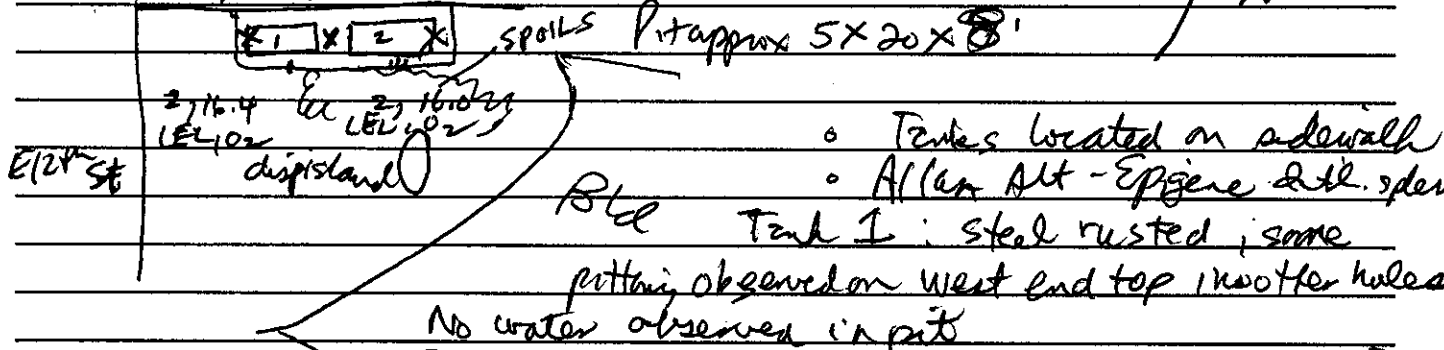 X 1 X 2 X spoils Pit approx 5 X 20 X 8'
2, 16.4 Ex 2, 16.0
LEL, O2 LEL, O2
E 12th St dispisland
• Tanks located on sidewalk
• Allan Alt - Epigene
Bld Tank 1: steel rusted, some
pitting observed on west end top, no other holes
No water observed in pit